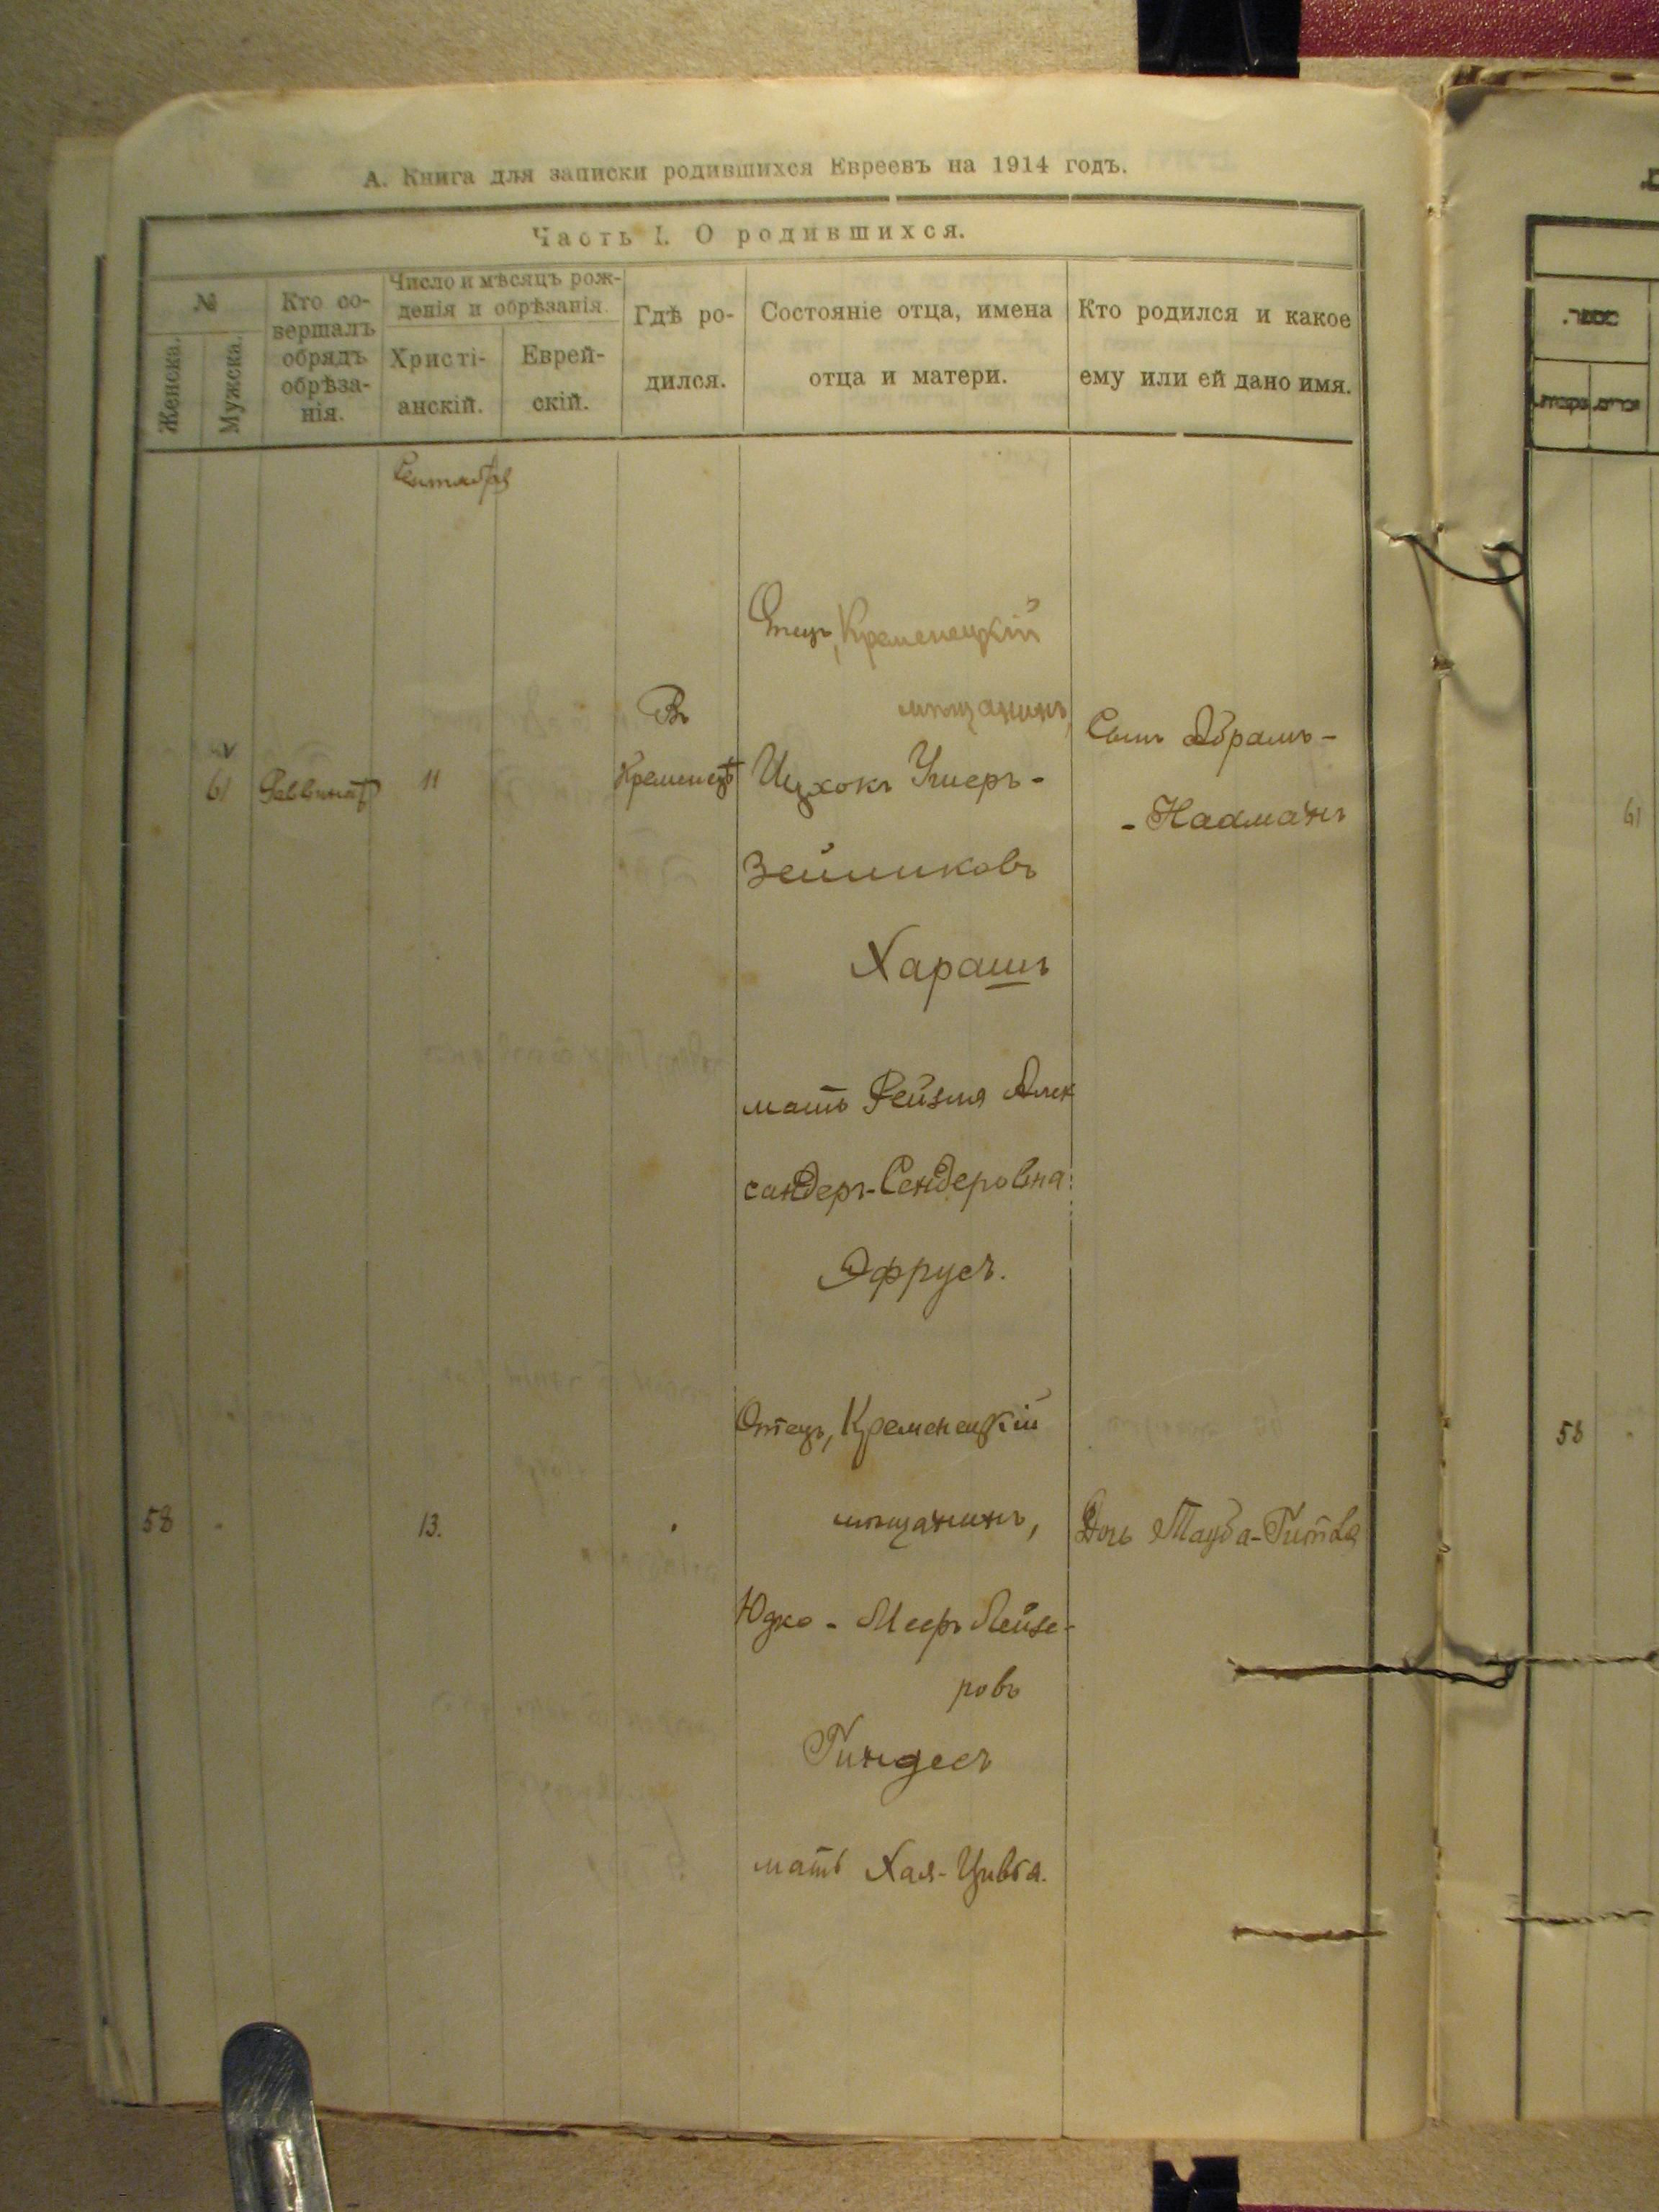 А. Книга для записки родившихся Евреевъ на 1914 годъ.
Часть I. О родившихся.
№
Женска.
Мужска.
Кто со-
вершалъ
обрядъ
обрѣза-
нія.
Число и мѣсяцъ рож-
денія и обрѣзанія.
Христі-
анскій.
Еврей-
скій.
Гдѣ ро-
дился.
Состояніе отца, имена
отца и матери.
Кто родился и какое
ему или ей дано имя.
Сентября
61
11
Въ
Кременцѣ
Отецъ, Кременецкій
мѣщанинъ,
Ицхокъ Ушеръ-
Зейликовъ
Харашъ
мать Рейзля Алек
сандеръ-Сендеровна
Эфрусъ.
Сынъ Абрамъ-
-Нахманъ
58
13.
Отецъ, Кременецкій
мѣщанинъ,
Юдко - Мееръ Лейзе-
ровъ
Гиндесъ
мать Хая-Цивья.
Дочь Тауба-Гитля
61
58